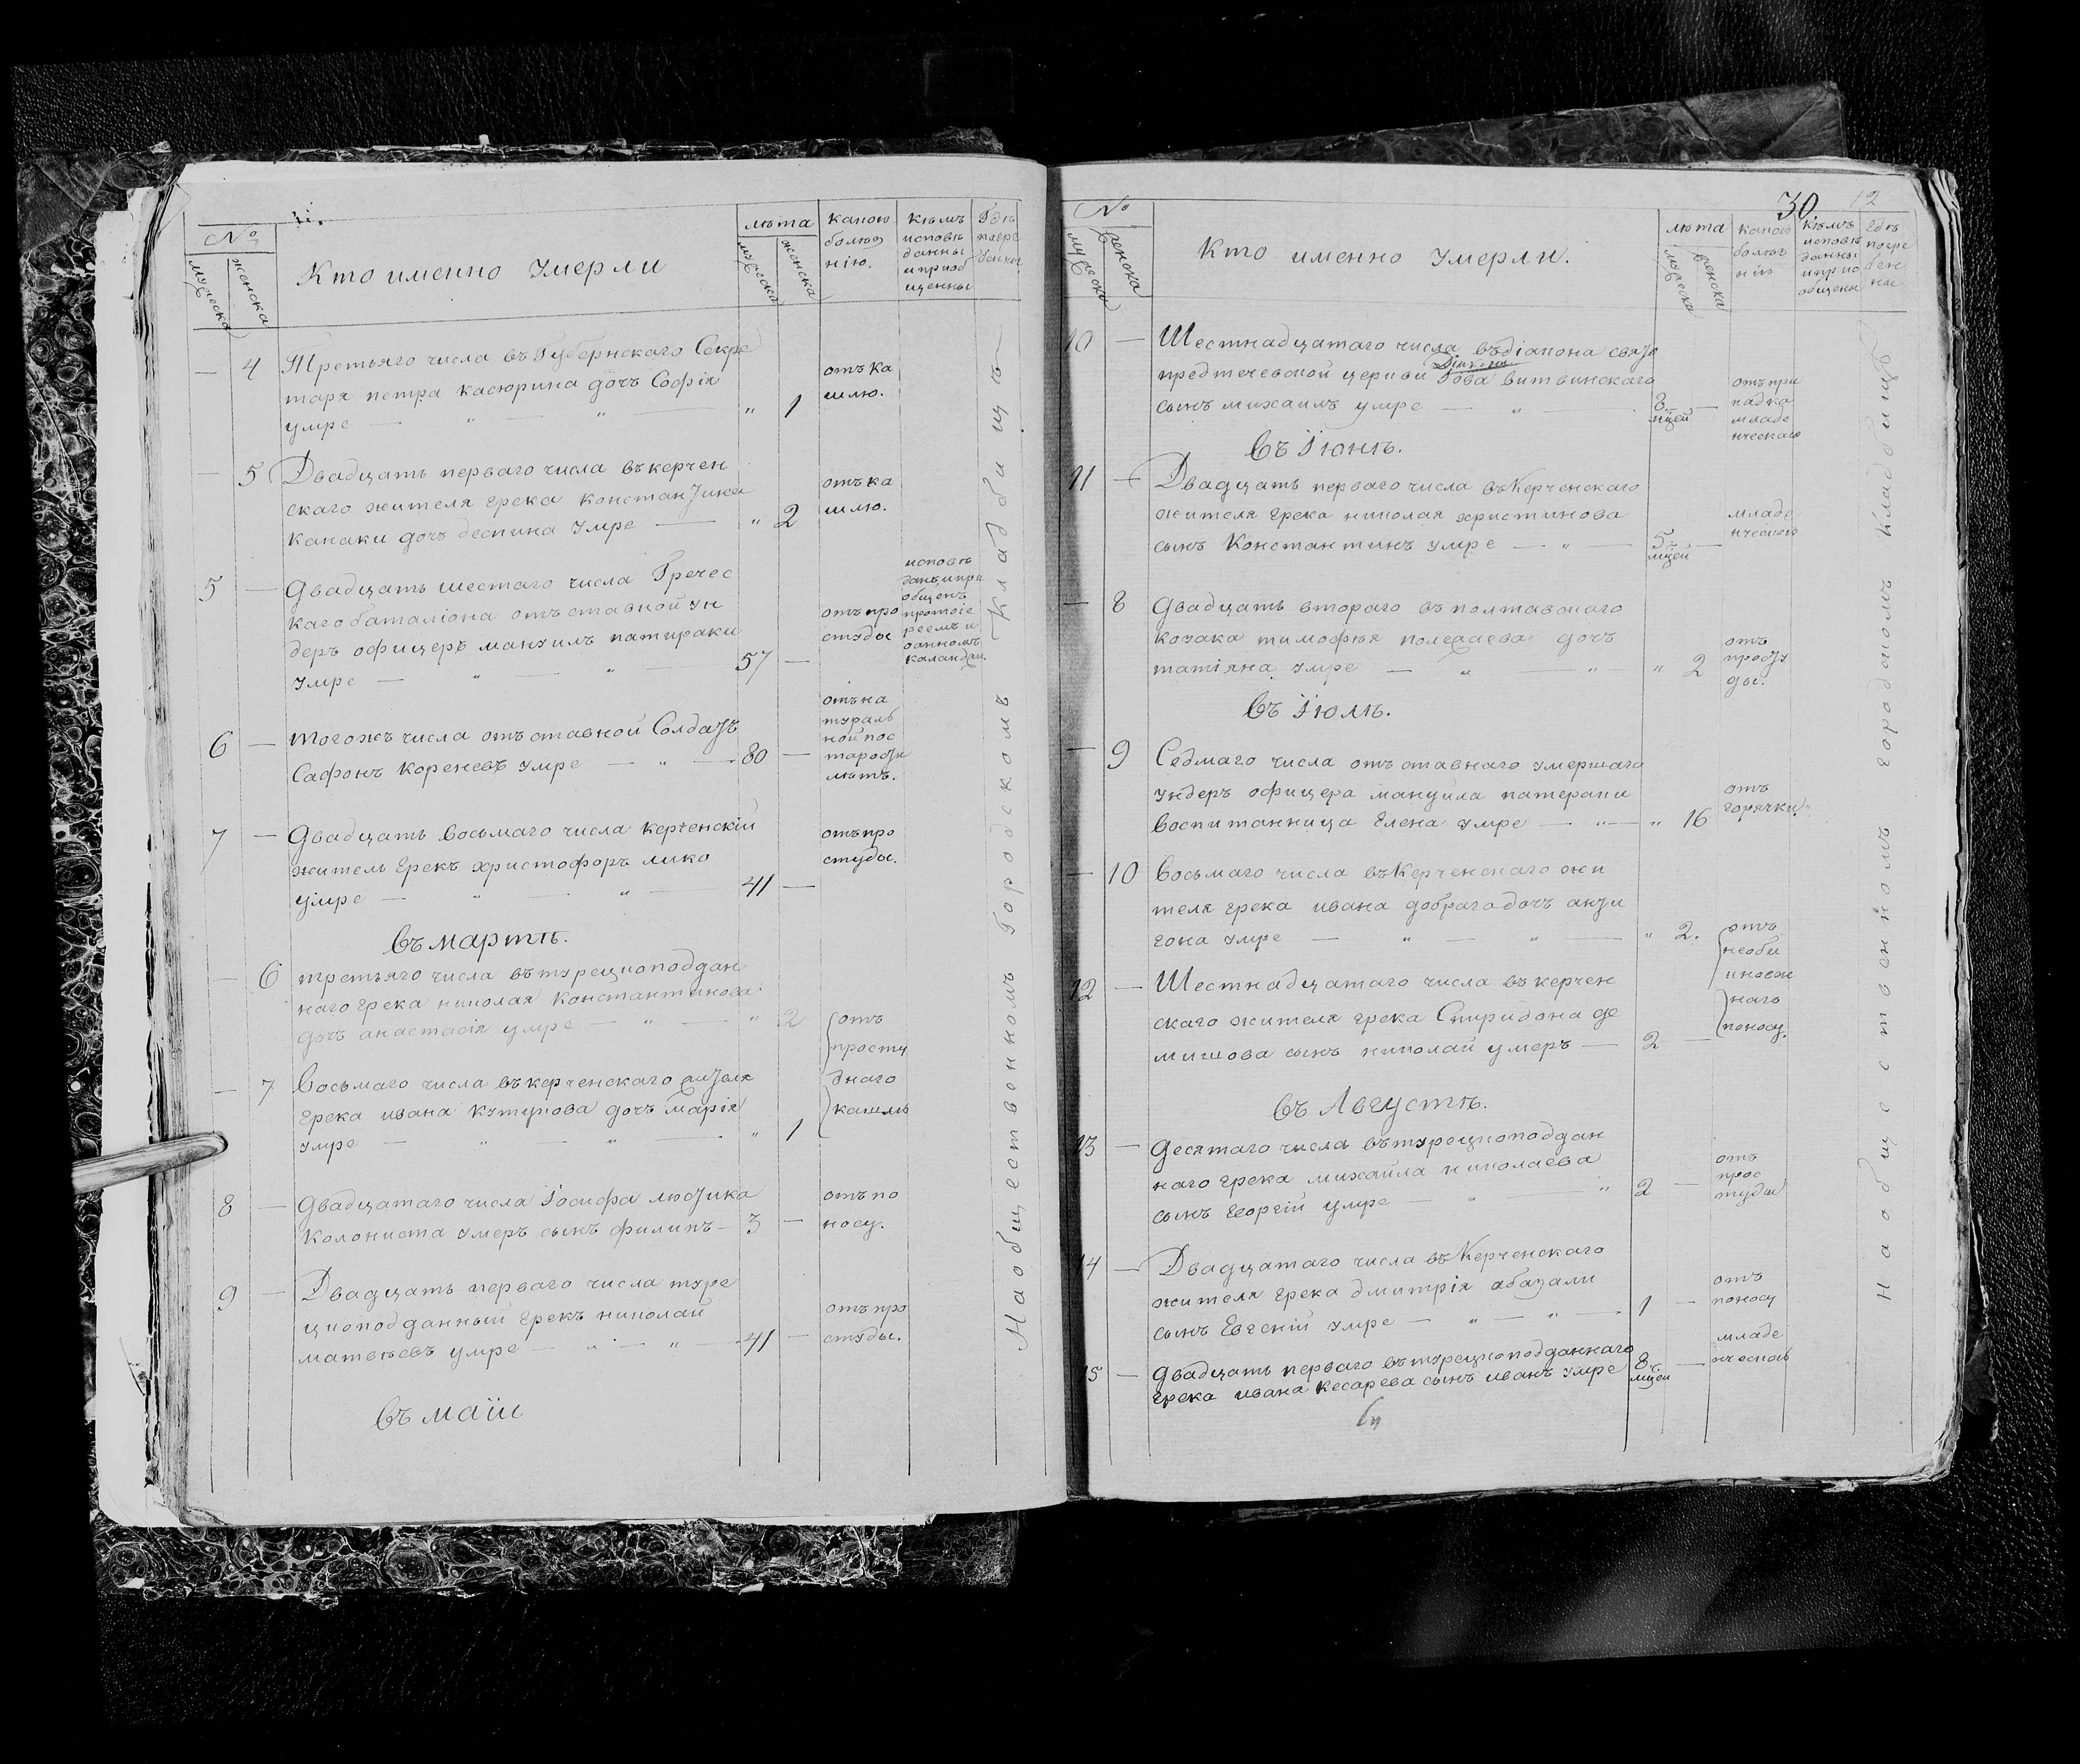 №
мужеска
женска
Кто именно умерли
лѣта
мужеска
женска
какою
болѣз
нію.
кѣмъ
исповѣ
данны
и приоб
щенны
Гдѣ
погре
бенны
— 4 Третьяго числа въ Губернскаго Секре
таря петра касюрина дочъ Софія
умре — " — " — " 1
отъ ка
шлю.
— 5 Двадцать перваго числа въ керчен
скаго жителя грека константина
канаки дочъ деспина умре — " 2
отъ ка
шлю.
5 — Двадцать шестаго числа Гречес
каго баталіона отъ ставной ун
деръ офицеръ мануилъ патираки
умре — " — " — 57 —
отъ про
студы
исповѣ
данъ и при
общенъ
протоіе
реемъ и
оанномъ
6 — тогожъ числа отъ ставной Солдатъ
Сафонъ Кореневъ умре — " — 80 —
отъ на
тураль
ной пос
тарости
лѣтъ.
7 — Двадцать восьмаго числа керченскій
житель грекъ христофоръ лико
умре — " — " — 41 —
отъ про
студы.
въ мартѣ.
— 6 третьяго числа въ турецкоподдан
наго грека николая Константинова
дочъ анастасія умре — " — " 2
— 7 Восьмаго числа въ керченскаго жителя
грека ивана кутупова дочъ марія
умре — " — " — " 1
отъ
просту
днаго
кашлю
8 — Двадцатаго числа Іосифа людвика
Колониста умеръ сынъ филипъ — 3 —
отъ по
носу.
9 — Двадцать перваго числа туре
цкоподданный грекъ николай
матвѣевъ умре — " — " — 41 —
отъ про
студы.
въ маіи
На общественномъ Городскомъ Кладбищѣ
30
12
№
мужеска
женска
Кто именно умерли.
лѣта
мужеска
женска
какою
болѣз
нію
кѣмъ
исповѣ
данны
и прио
бщены
гдѣ
погре
бен
ны
10 — Шестнадцатаго числа въ діакона свято
предтечевской церкви Іова витвинскаго
сынъ михаилъ умре — " — 8 мцей —
отъ при
падка
младе
нческаго
въ Іюнѣ.
11 — Двадцать перваго числа въ Керченскаго
жителя грека николая христинова
сынъ Константинъ умре — " — 5 мцей —
младе
нческою
— 8 Двадцать втораго въ полтавскаго
козака тимофѣя полежаева дочъ
татіяна умре — " — " " 2
отъ
просту
ды.
въ Іюлѣ.
— 9 Седмаго числа отъ ставнаго умершаго
ундеръ офицера мануила патераки
воспитанница Елена умре — " — " 16
отъ
горячки.
— 10 Восьмаго числа въ Керченскаго жи
теля грека ивана добрага дочъ анти
гона умре — " — " — " 2.
12 — Шестнадцатаго числа въ керчен
скаго жителя грека Спиридона де
мишова сынъ николай умеръ — 2 —
отъ
необы
кновен
наго
поносу.
въ Августѣ.
13 — Десятаго числа въ турецкоподдан
наго грека михаила николаева
сынъ георгій умре — " — " 2 —
отъ
прос
туды
14 — Двадцатаго числа въ Керченскаго
жителя грека дмитрія абазали
сынъ Евгеній умре — " — " — 1 —
отъ
поносу
15 — Двадцать перваго въ турецкоподданнаго
грека ивана кесарева сынъ иванъ умре 8 мцей —
младе
нческою
На общественномъ городскомъ Кладбищѣ